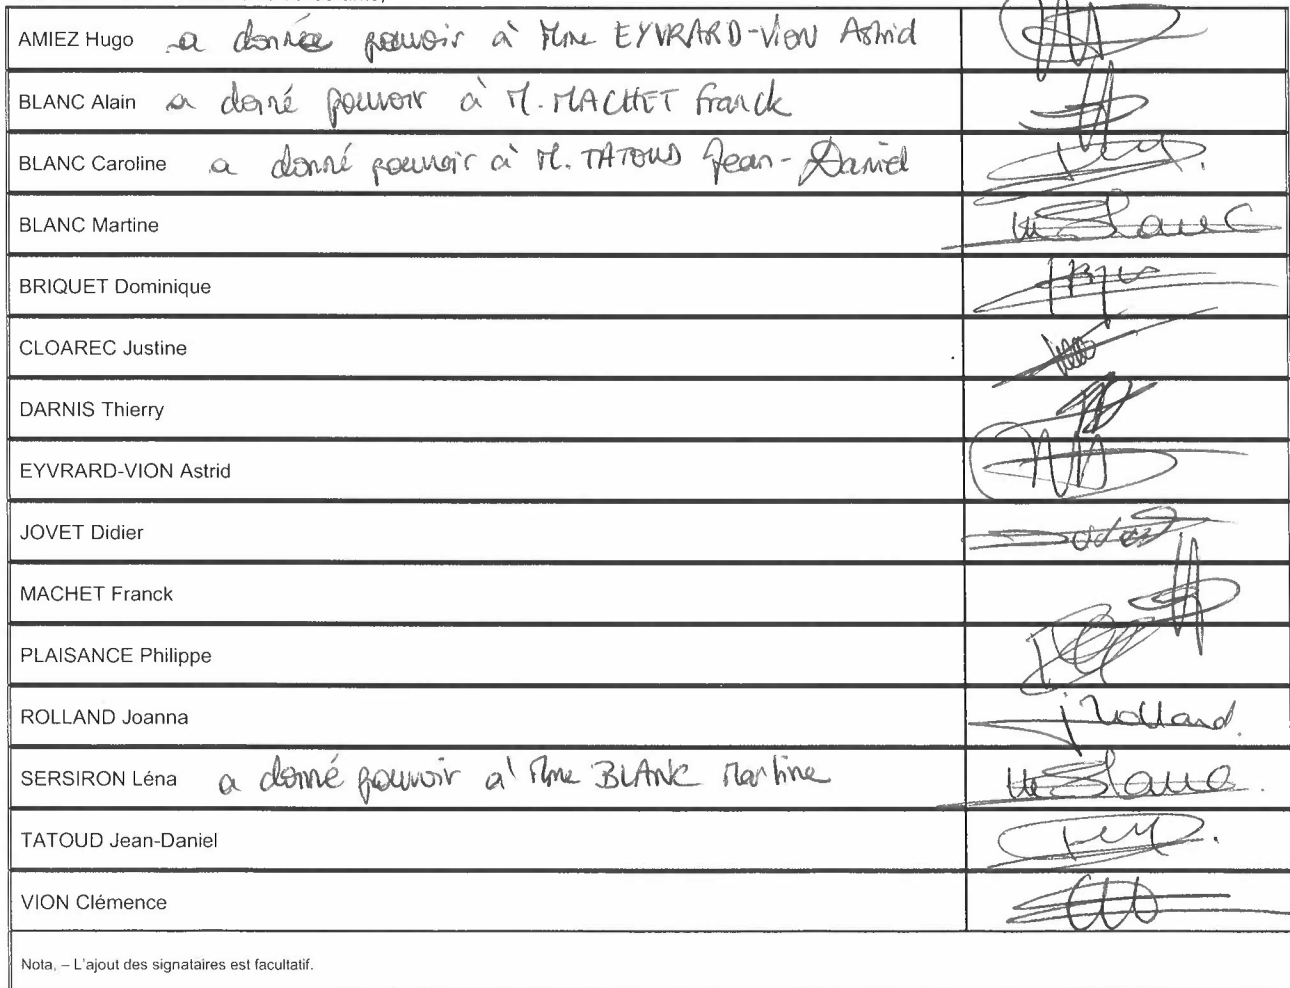 AMIEZ Hugo a donnée pouvoir à Mme EYVRARD-VION Astrid
BLANC Alain a donné pouvoir à M. MACHET Franck
BLANC Caroline a donné pouvoir à M. TATOUD Jean-Daniel
BLANC Martine mBlanc
BRIQUET Dominique
CLOAREC Justine
DARNIS Thierry
EYVRARD-VION Astrid
JOVET Didier
MACHET Franck
PLAISANCE Philippe
ROLLAND Joanna jRolland
SERSIRON Léna a donné pouvoir a' Mme BLANC Martine mBlanc
TATOUD Jean-Daniel
VION Clémence
Nota. – L'ajout des signataires est facultatif.